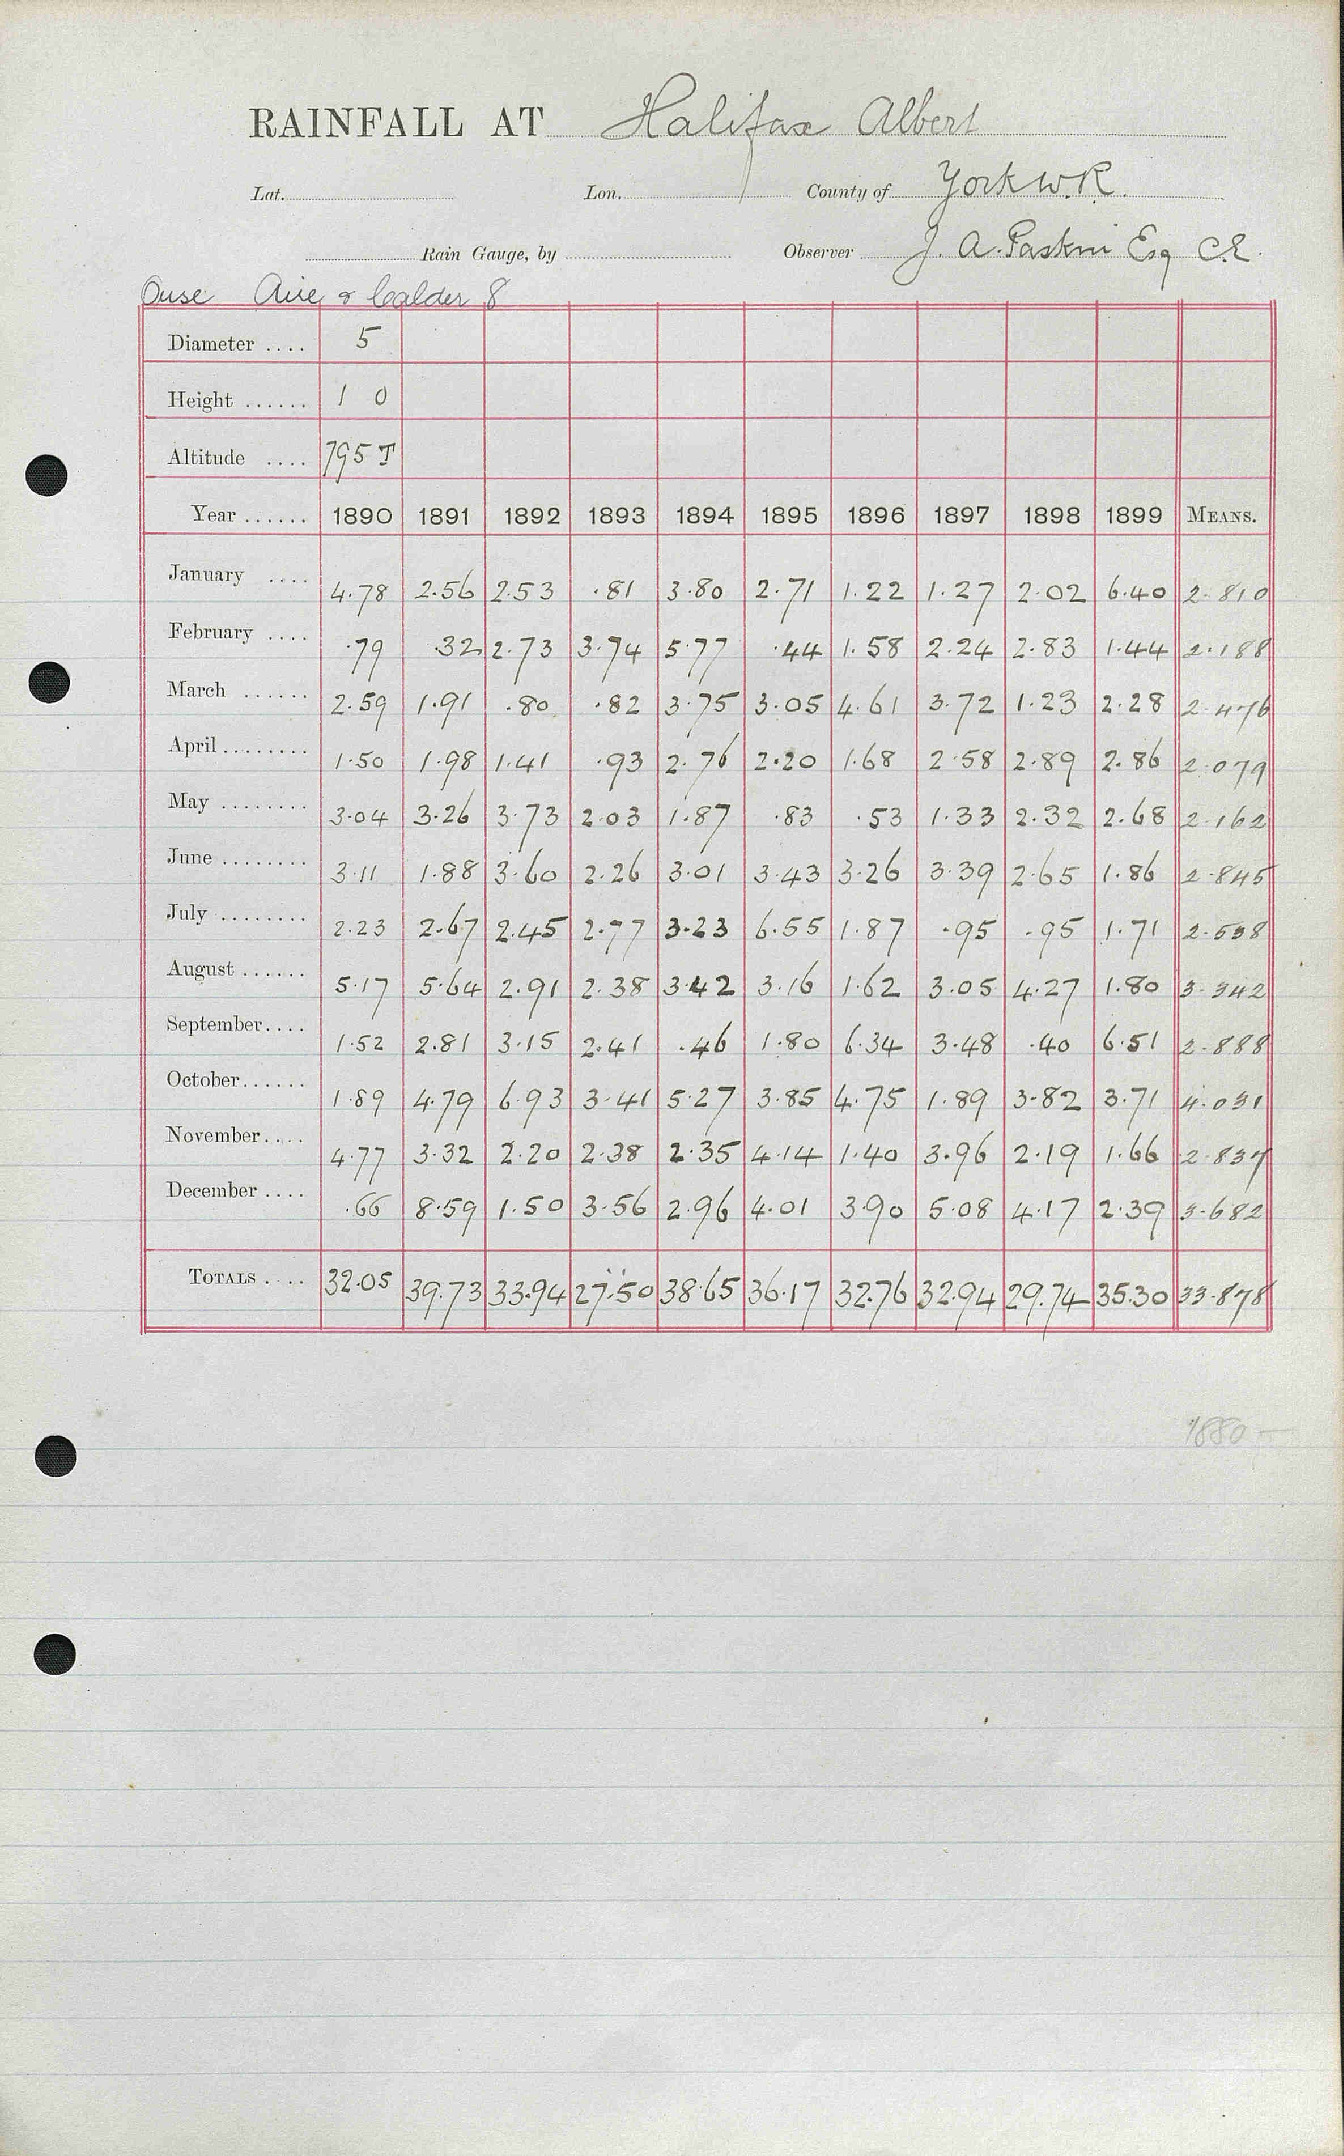 RAINFALL AT Halifax Albert
Lat. Lon. County of York W.R.
Rain Gauge, by Observer J. A. Paskin Esq C.E.
Ouse Aire & Calder 8
Diameter .... 5
Height ...... 1 0
Altitude .... 795 T
Year ...... 1890 1891 1892 1893 1894 1895 1896 1897 1898 1899 MEANS.
January .... 4.78 2.56 2.53 .81 3.80 2.71 1.22 1.27 2.02 6.40 2.810
February .... .79 .32 2.73 3.74 5.77 .44 1.58 2.24 2.83 1.44 2.188
March ...... 2.59 1.91 .80 .82 3.75 3.05 4.61 3.72 1.23 2.28 2.476
April ........ 1.50 1.98 1.41 .93 2.76 2.20 1.68 2.58 2.89 2.86 2.079
May ........ 3.04 3.26 3.73 2.03 1.87 .83 .53 1.33 2.32 2.68 2.162
June ........ 3.11 1.88 3.60 2.26 3.01 3.43 3.26 3.39 2.65 1.86 2.845
July ........ 2.23 2.67 2.45 2.77 3.23 6.55 1.87 .95 .95 1.71 2.538
August ...... 5.17 5.64 2.91 2.38 3.42 3.16 1.62 3.05 4.27 1.80 3.342
September.... 1.52 2.81 3.15 2.41 .46 1.80 6.34 3.48 .40 6.51 2.888
October...... 1.89 4.79 6.93 3.41 5.27 3.85 4.75 1.89 3.82 3.71 4.031
November.... 4.77 3.32 2.20 2.38 2.35 4.14 1.40 3.96 2.19 1.66 2.837
December .... .66 8.59 1.50 3.56 2.96 4.01 3.90 5.08 4.17 2.39 3.682
TOTALS .... 32.05 39.73 33.94 27.50 38.65 36.17 32.76 32.94 29.74 35.30 33.878
1880 —